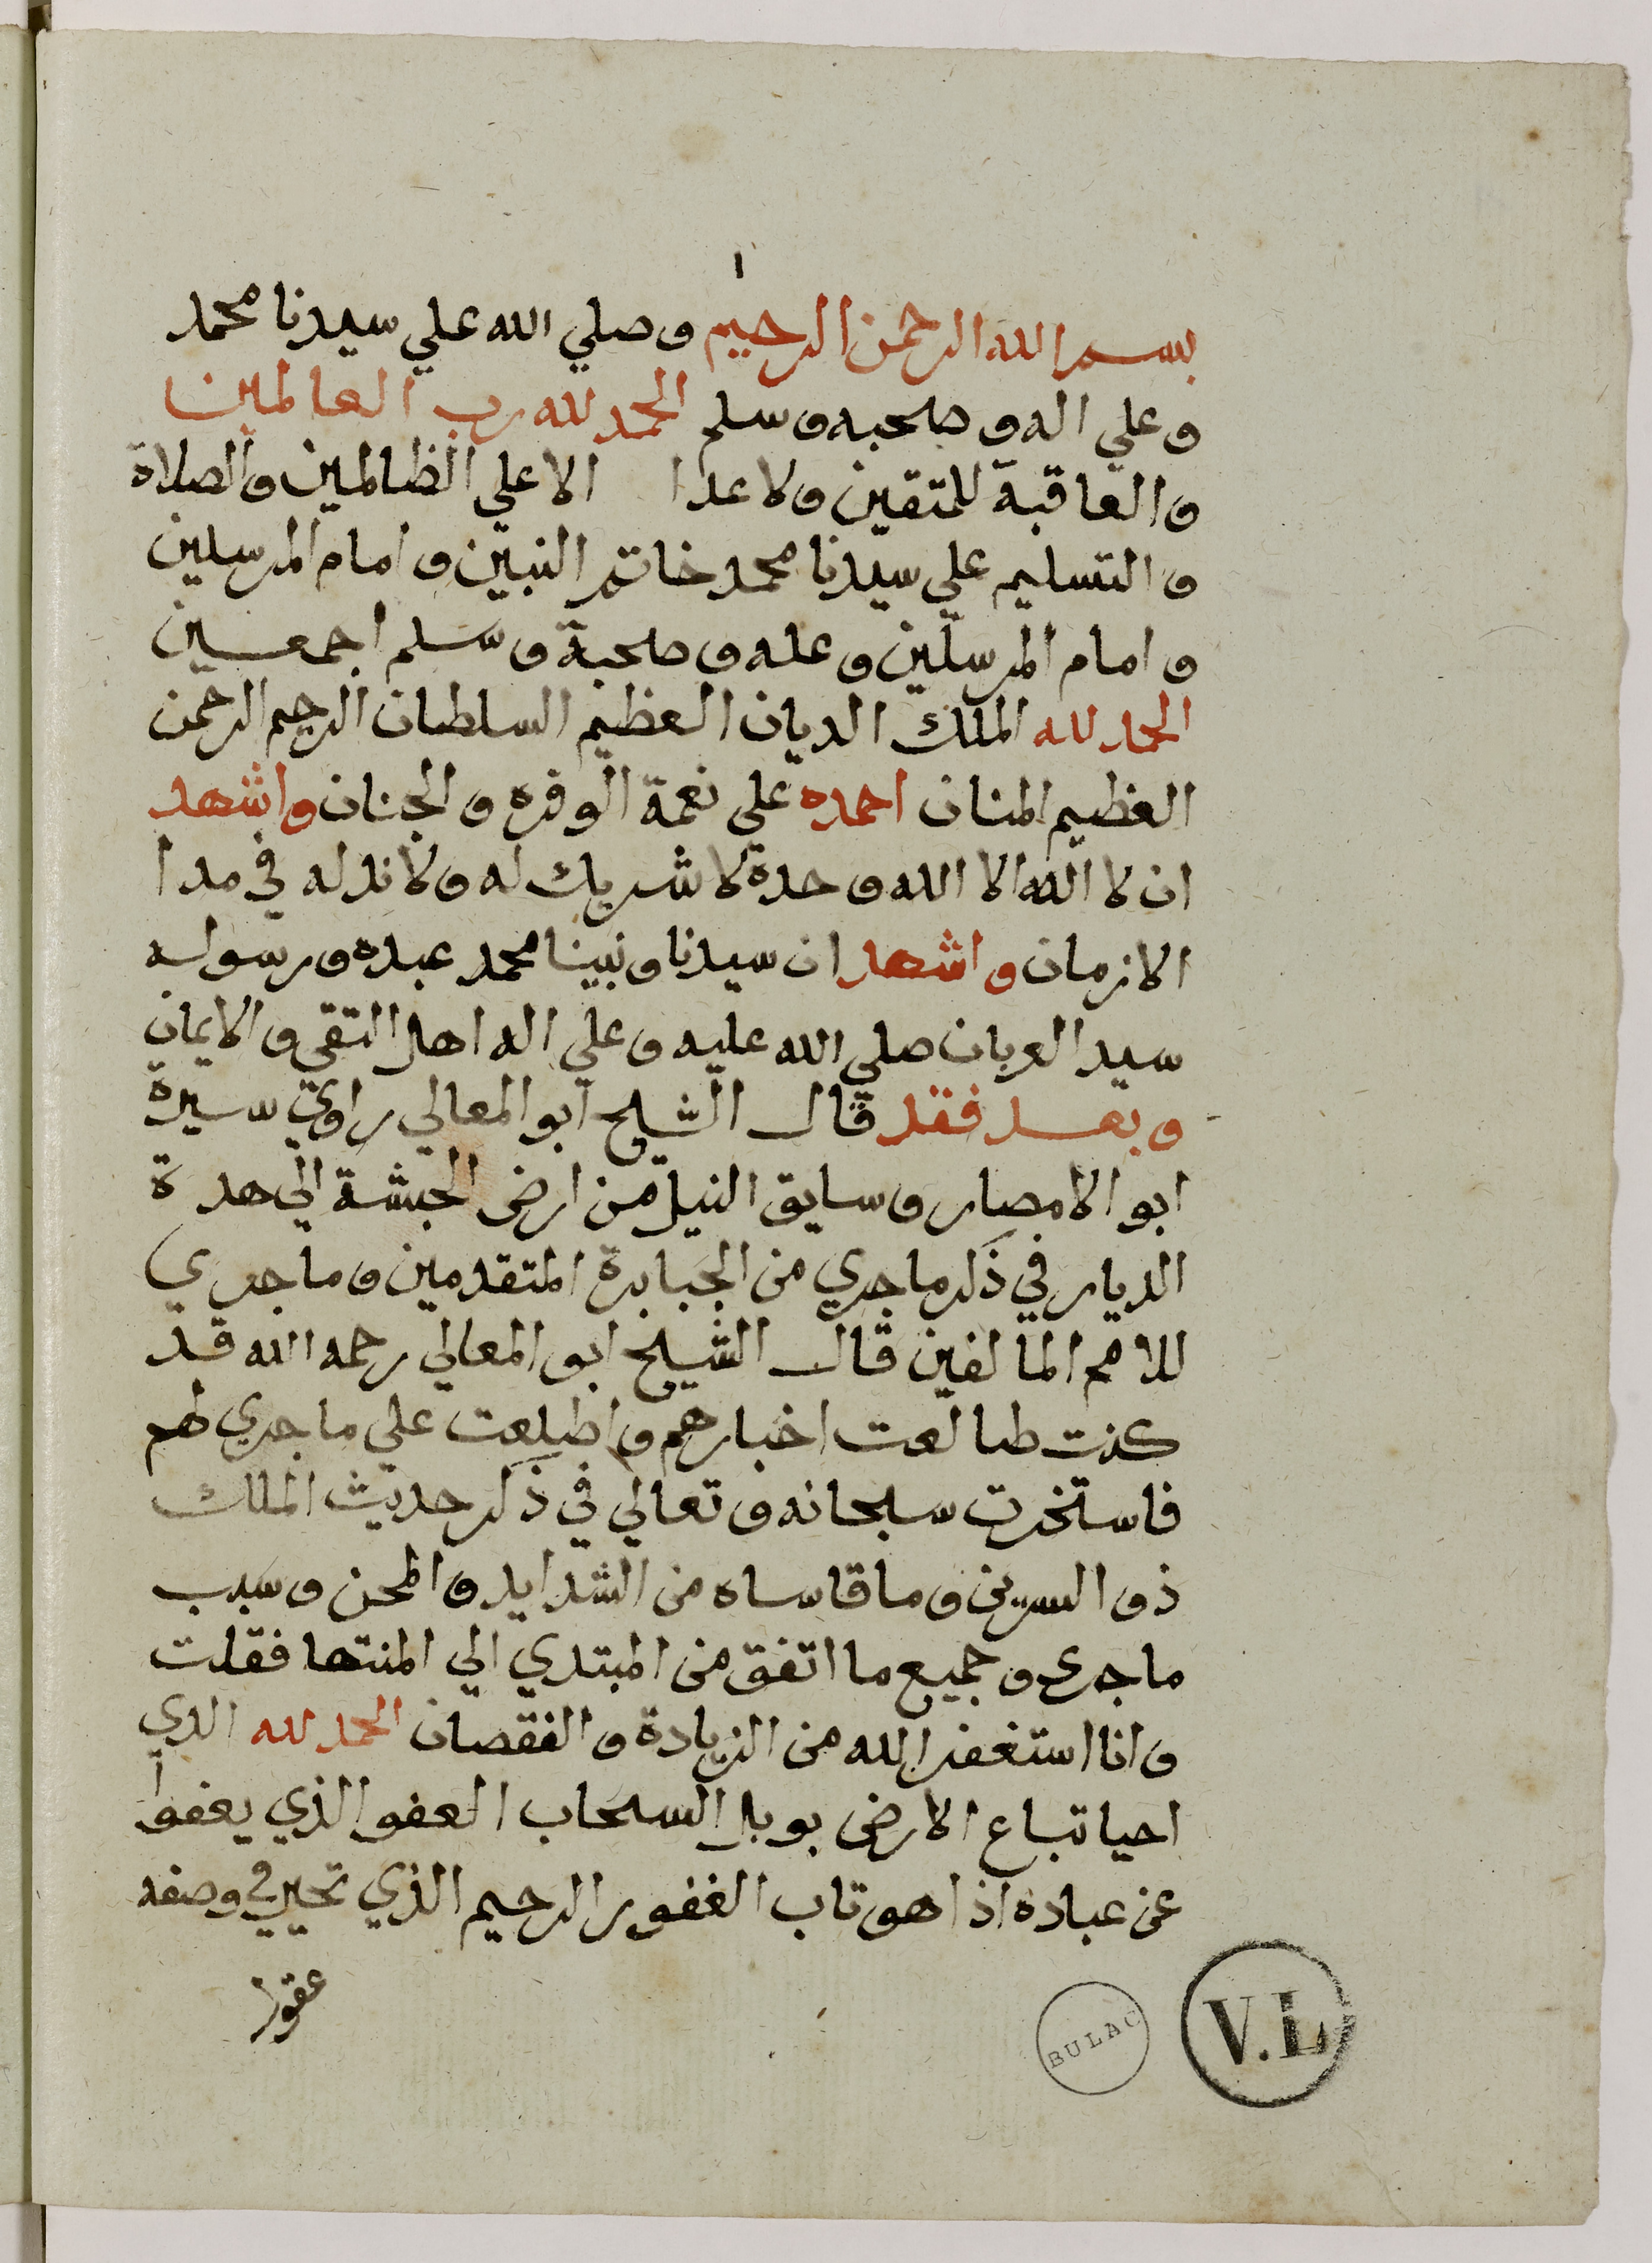 ١
بسم الله الرحمن الرحيم وصلي الله علي سيدنا محمد
وعلي اله وصحبه وسلم الحمد لله رب العالمين
والعاقبة للمتقين ولا عدا الا علي الظالمين والصلاة
والتسليم علي سيدنا محمد خاتم النبين وامام المرسلين
وامام المرسلين وعله وصحبة وسلم اجمعين
الحمد لله الملك الديان العظيم السلطان الرحيم الرحمن
العظيم المنان احمده علي نعمة الوفره والجنان واشهد
ان لا اله الا الله وحدة لا شريك له ولا ند له في مدا
الازمان واشهد ان سيدنا ونبينا محمد عبده ورسوله
سيد العربان صلي الله عليه وعلي اله اهل التقي والايمان
وبعد فقد قال الشيخ ابو المعالي راوي سيرة
ابو الامصار وسايق النيل من ارض الحبشة الي هدة
الديار في ذكر ماجري من الجبابرة المتقدمين وماجري
للامم المالفين قال الشيخ ابو المعالي رحمه الله قد
كنت طالعت اخبارهم واطلعت علي ماجري لهم
فاستخرت سبحانه وتعالي في ذكر حديث الملك
ذو اليزن وماقاساه من الشدايد والمحن وسبب
ماجري وجميع ما اتفق من المبتدي الي المنتها فقلت
وانا استغفر الله من الزيادة والنقصان الحمد لله الدي
احيا تباع الارض بوبل السحاب العفو الذي يعفوا
عن عباده اذا هو تاب الغفور الرحيم الذي تحير في وصفه
عقول
BULAC
V.L